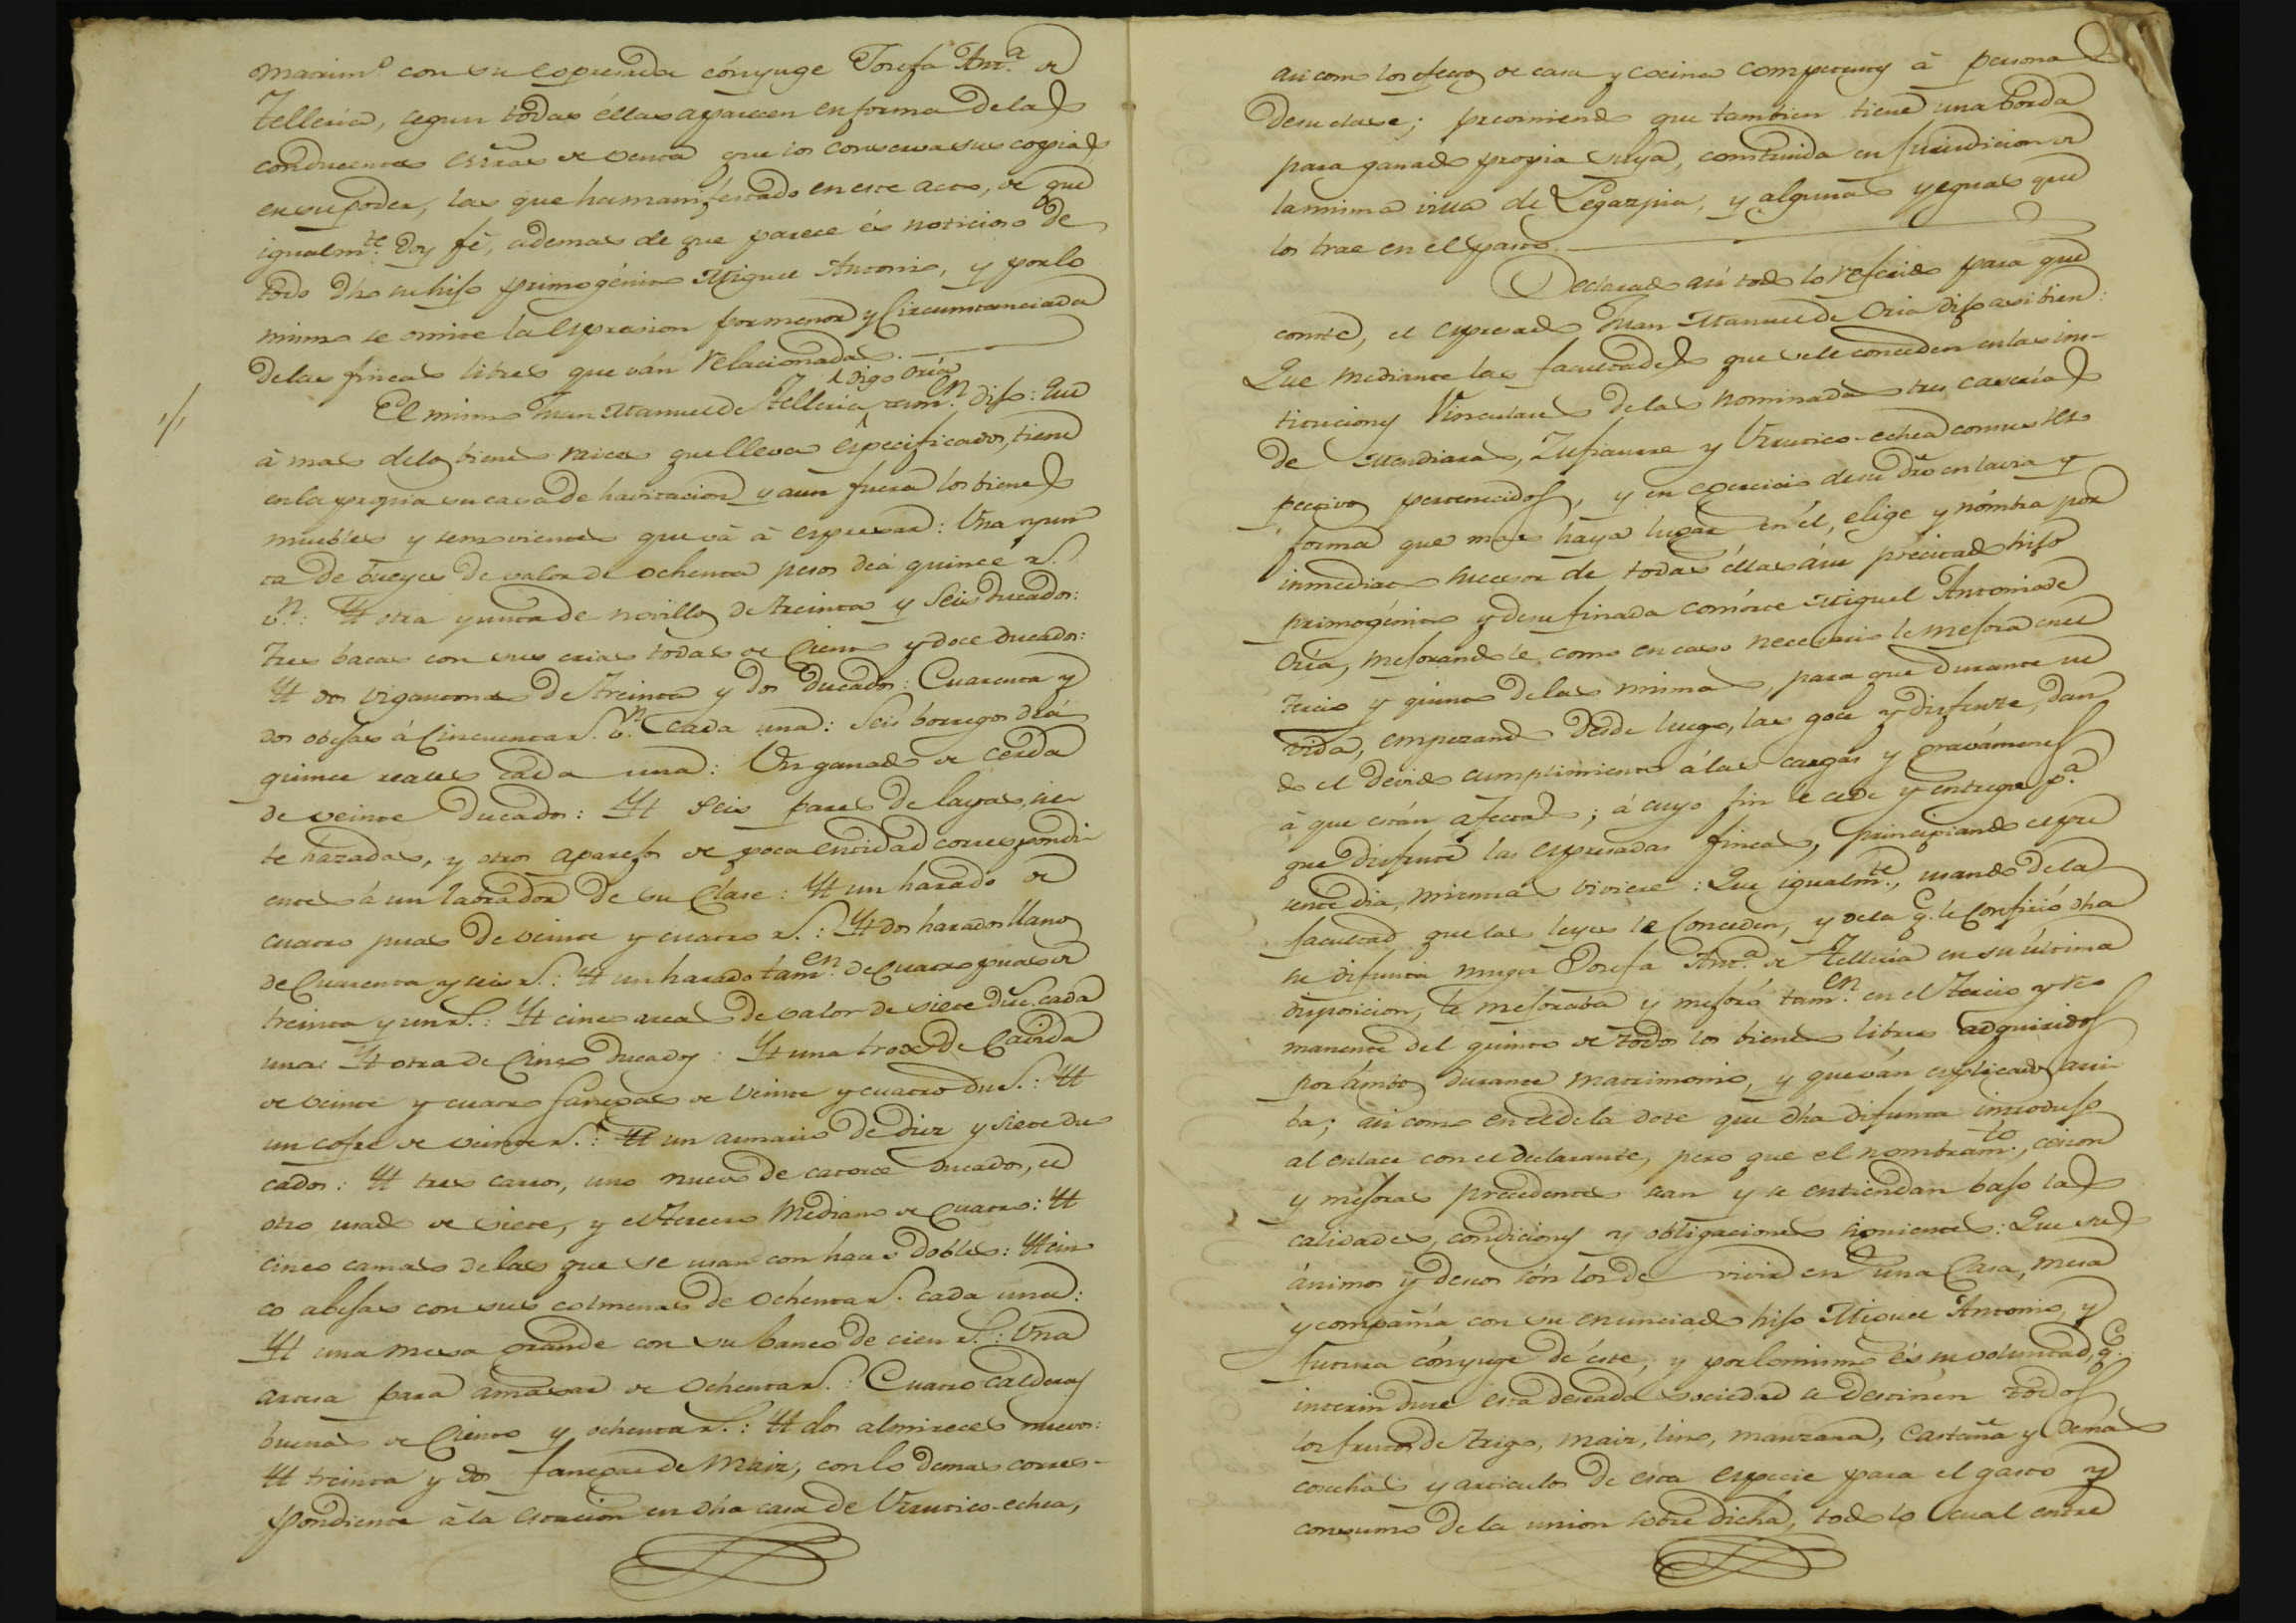 marim.º con su espresada cónyuge Josefa Ant.ª de
Telleria, segun todas éllas aparecen en forma de las
conducentes esrãs de venta que los conserva sus copias
en su poder, las que ha manifestado en este acto, de que
igualm.te doy fé, ademas de que parece és noticioso de
todo dho su hijo primogénito Miguel Antonio, y por lo
mismo se omite la espresion pormenor y circumstanciada
de las fincas libres que ván relacionadas.
digo Oria
El mismo Juan Manuel de Telleria, tam.en dijo: Que
à mas de los bienes raices que lleva especificados, tiene
en la propia su casa de havitacion y aun fuera los bienes
muebles y semovientes que vá à espresar: Una yun
ta de bueyes de valor de ochenta pesos de á quince r.s
v.n: Yt otra yunta de novillos de treinta y seis ducados:
Tres bacas con sus crias todas de ciento y doce ducados:
Yt dos vigantonas de treinta y dos ducados: Cuarenta y
dos obejas á cincuenta r.s v.n cada una: Seis borregos de á
quince reales cada uno: Un ganado de cerda
de veinte ducados: Yt seis pares de layas, sie
te hazadas, y otros aparejos de poca entidad correspondi
entes á un labrador de su clase: Yt un harado de
cuatro puas de veinte y cuatro r.s: Yt dos harados llanos
de cuarenta y seis r.s: Yt un harado tam.en de cuatro puas de
treinta y un r.s: Yt cinco arcas de valor de siete du.s cada
una: Yt otra de cinco ducados: Yt una troxe de cavida
de veinte y cuatro fanegas de veinte y cuatro du.s: Yt
un cofre de veinte r.s: Yt un armario de diez y siete du
cados: Yt tres carros, uno nuevo de catorce ducados, el
otro usado de siete, y el tercero mediano de cuatro: Yt
cinco camas de las que se usan con haces dobles: Yt cin
co abejas con sus colmenas de ochenta r.s cada una:
Yt una mesa grande con su banco de cien r.s: Una
artesa para amasar de ochenta r.s: Cuatro calderas
buenas de ciento y ochenta r.s: Yt dos almireces nuevos:
Yt treinta y dos fanegas de maiz, con lo demas corres-
pondiente à la estacion en dha casa de Urrutico-echea,
asi como los efectos de casa y cocina competentes à persona
de su clase; previniendo que tambien tiene una borda
para ganado propia suya, construida en jurisdicion de
la misma villa de Legazpia, y algunas yeguas que
los trae en el pasto.
Declarado asi todo lo referido para que
conste, el espresado Juan Manuel de Oria dijo asi bien:
Que mediante las facultades que se le conceden en las ins-
tituciones Vinculares de las nominadas tres caserias
de Mendiaras, Zufiaurre y Urrutico-echea con sus res
pectivos pertenecidos, y en egercicio de su dro en la via y
forma que mas haya lugar en él, elige y nómbra por
inmediato sucesor de todas éllas á su précitado hijo
primogénito y de su finada consorte Miguel Antonio de
Oria, mejorandole como en caso necesario le mejora en el
tercio y quinto de las mismas, para que durante su
vida, empezando desde luego, las goce y disfrute, dan
do el devido cumplimiento á las cargas y gravámenes
à que están afectas; á cuyo fin le cede y entrega p.ª
que disfrute las espresadas fincas, principiando el pre
sente dia, mientras viviere: Que igualm.te, usando de la
facultad que las leyes le conceden, y de la q.e le confirió dha
su difunta muger Josefa Ant.ª de Telleria en su última
disposicion, le mejoraba y mejoró tam.en en el tercio y re
manente del quinto de todos los bienes libres adquiridos
por ámbos durante matrimonio, y que ván esplicados arri
ba; asi como en el de la dote que dha difunta introdujo
al enlace con el declarante, pero que el nombram.to, cesion
y mejoras precedentes sean y se entiendan bajo las
calidades, condiciones y obligaciones siguientes: Que sus
ánimos y deseos són los de vivir en una casa, mesa
y compañía con su enunciado hijo Miguel Antonio, y
futura cónyuge de éste; y por lo mismo és su voluntad, q.e
interin dure esta deseada sociedad se destinen todos
los frutos de trigo, maiz, lino, manzana, castaña y demas
cosechas y articulos de esta especie para el gasto y
consumo de la union sobre dicha, todo lo cual entre